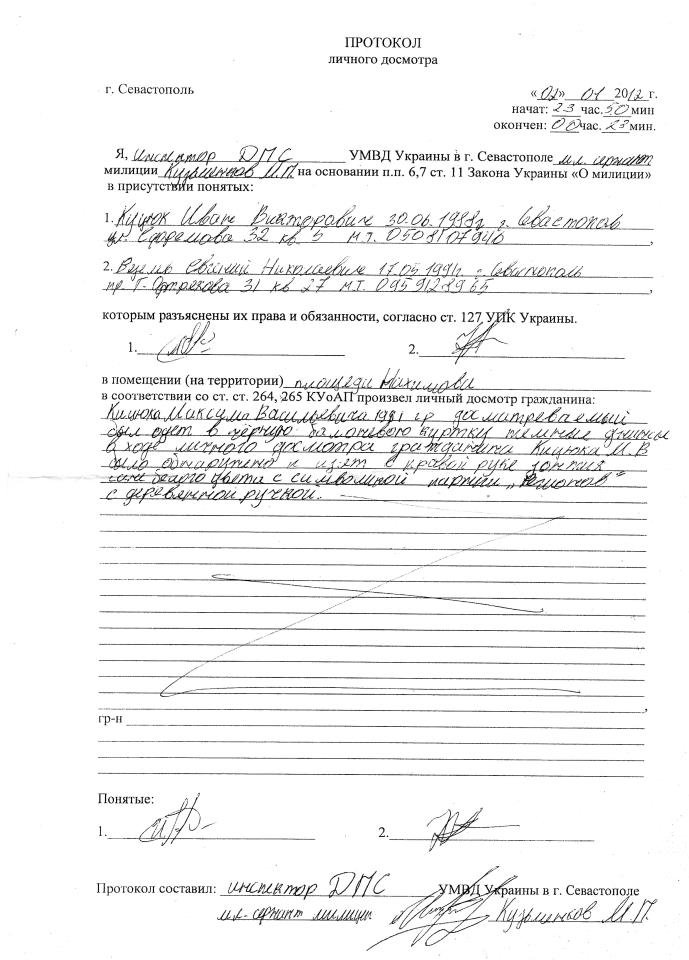 ПРОТОКОЛ
личного досмотра
г. Севастополь
«02» 01 2012 г.
начат: 23 час. 50 мин
окончен: 00 час. 23 мин.
Я, инспектор ДПС УМВД Украины в г. Севастополе мл. сержант
милиции Кузьменков М.П. на основании п.п. 6,7 ст. 11 Закона Украины «О милиции»
в присутствии понятых:
1. Иван 30.06.1988г г. Севастополь
ул. Ефремова 32 кв 5 м.т.
2. Евгений Николаевич г. Севастополь
пр. Г. Острякова 31 кв 27 м.т. 0959128965
которым разъяснены их права и обязанности, согласно ст. 127 УПК Украины.
1. 2.
в помещении (на территории) площади Нахимова
в соответствии со ст. ст. 264, 265 КУоАП произвел личный досмотр гражданина:
Максима Васильевича 1981 г.р досматреваемый
был одет в чёрную балоневую куртку темные джинсы
в ходе личного досмотра гражданина Кицюка М.В
было обнаружено и изят с правой руке зонтик
белого цвета с символикой партии „Регионов"
с деревянной ручкой.
гр-н
Понятые:
1. 2.
Протокол составил: инспектор ДПС УМВД Украины в г. Севастополе
мл-сержант милиции Кузьменков М.П.